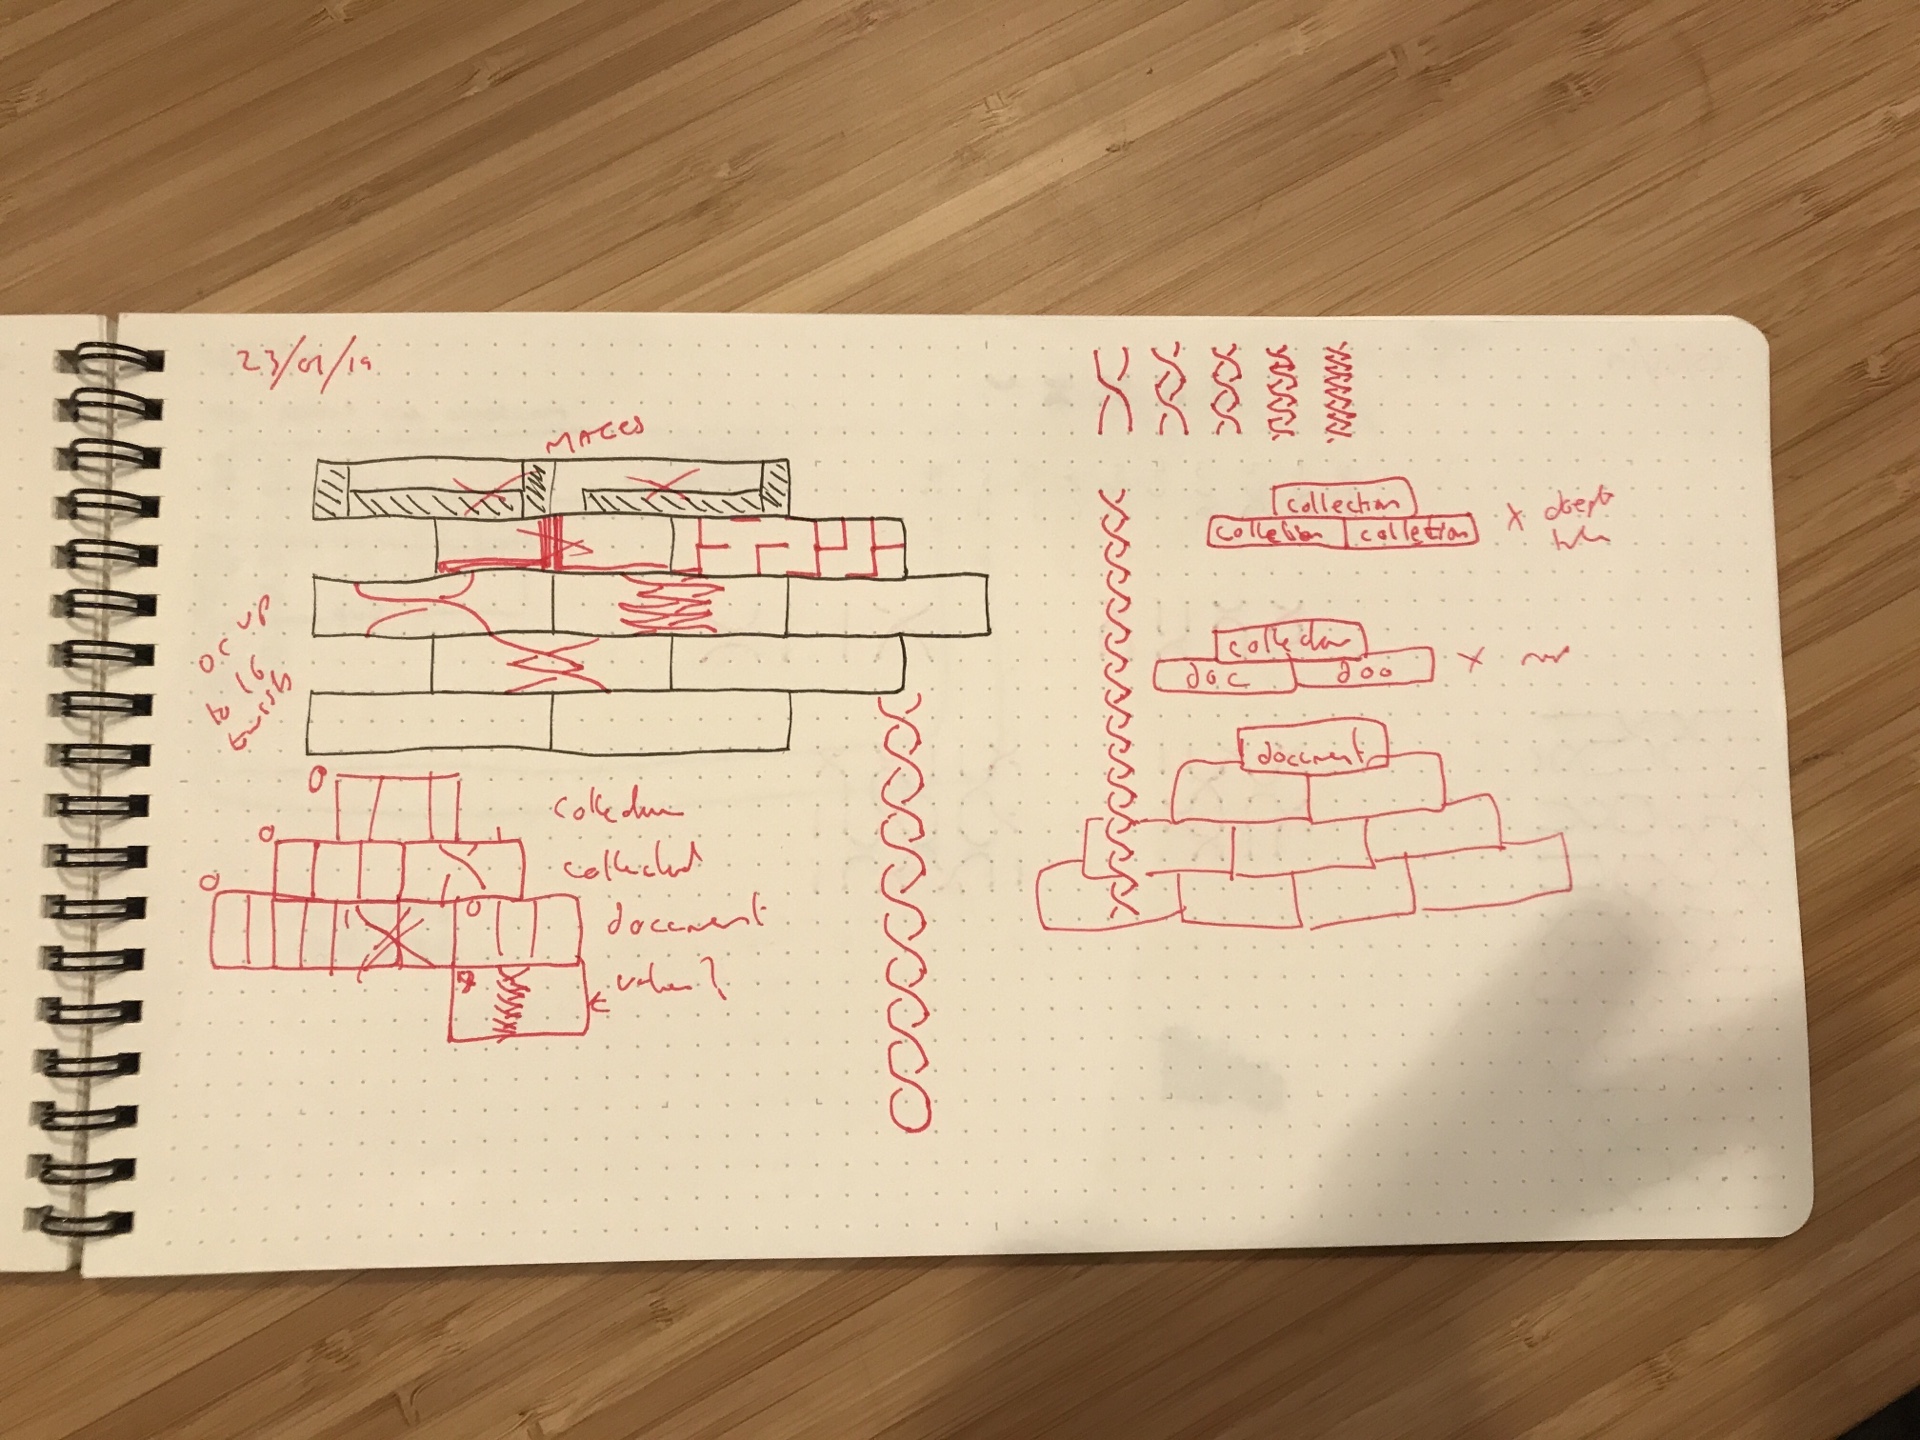 23/01/19
MACRO
or up
to 16
twists
collection
collected
document
values?
collection
collection collection
x depth
collection
doc doc
x
document